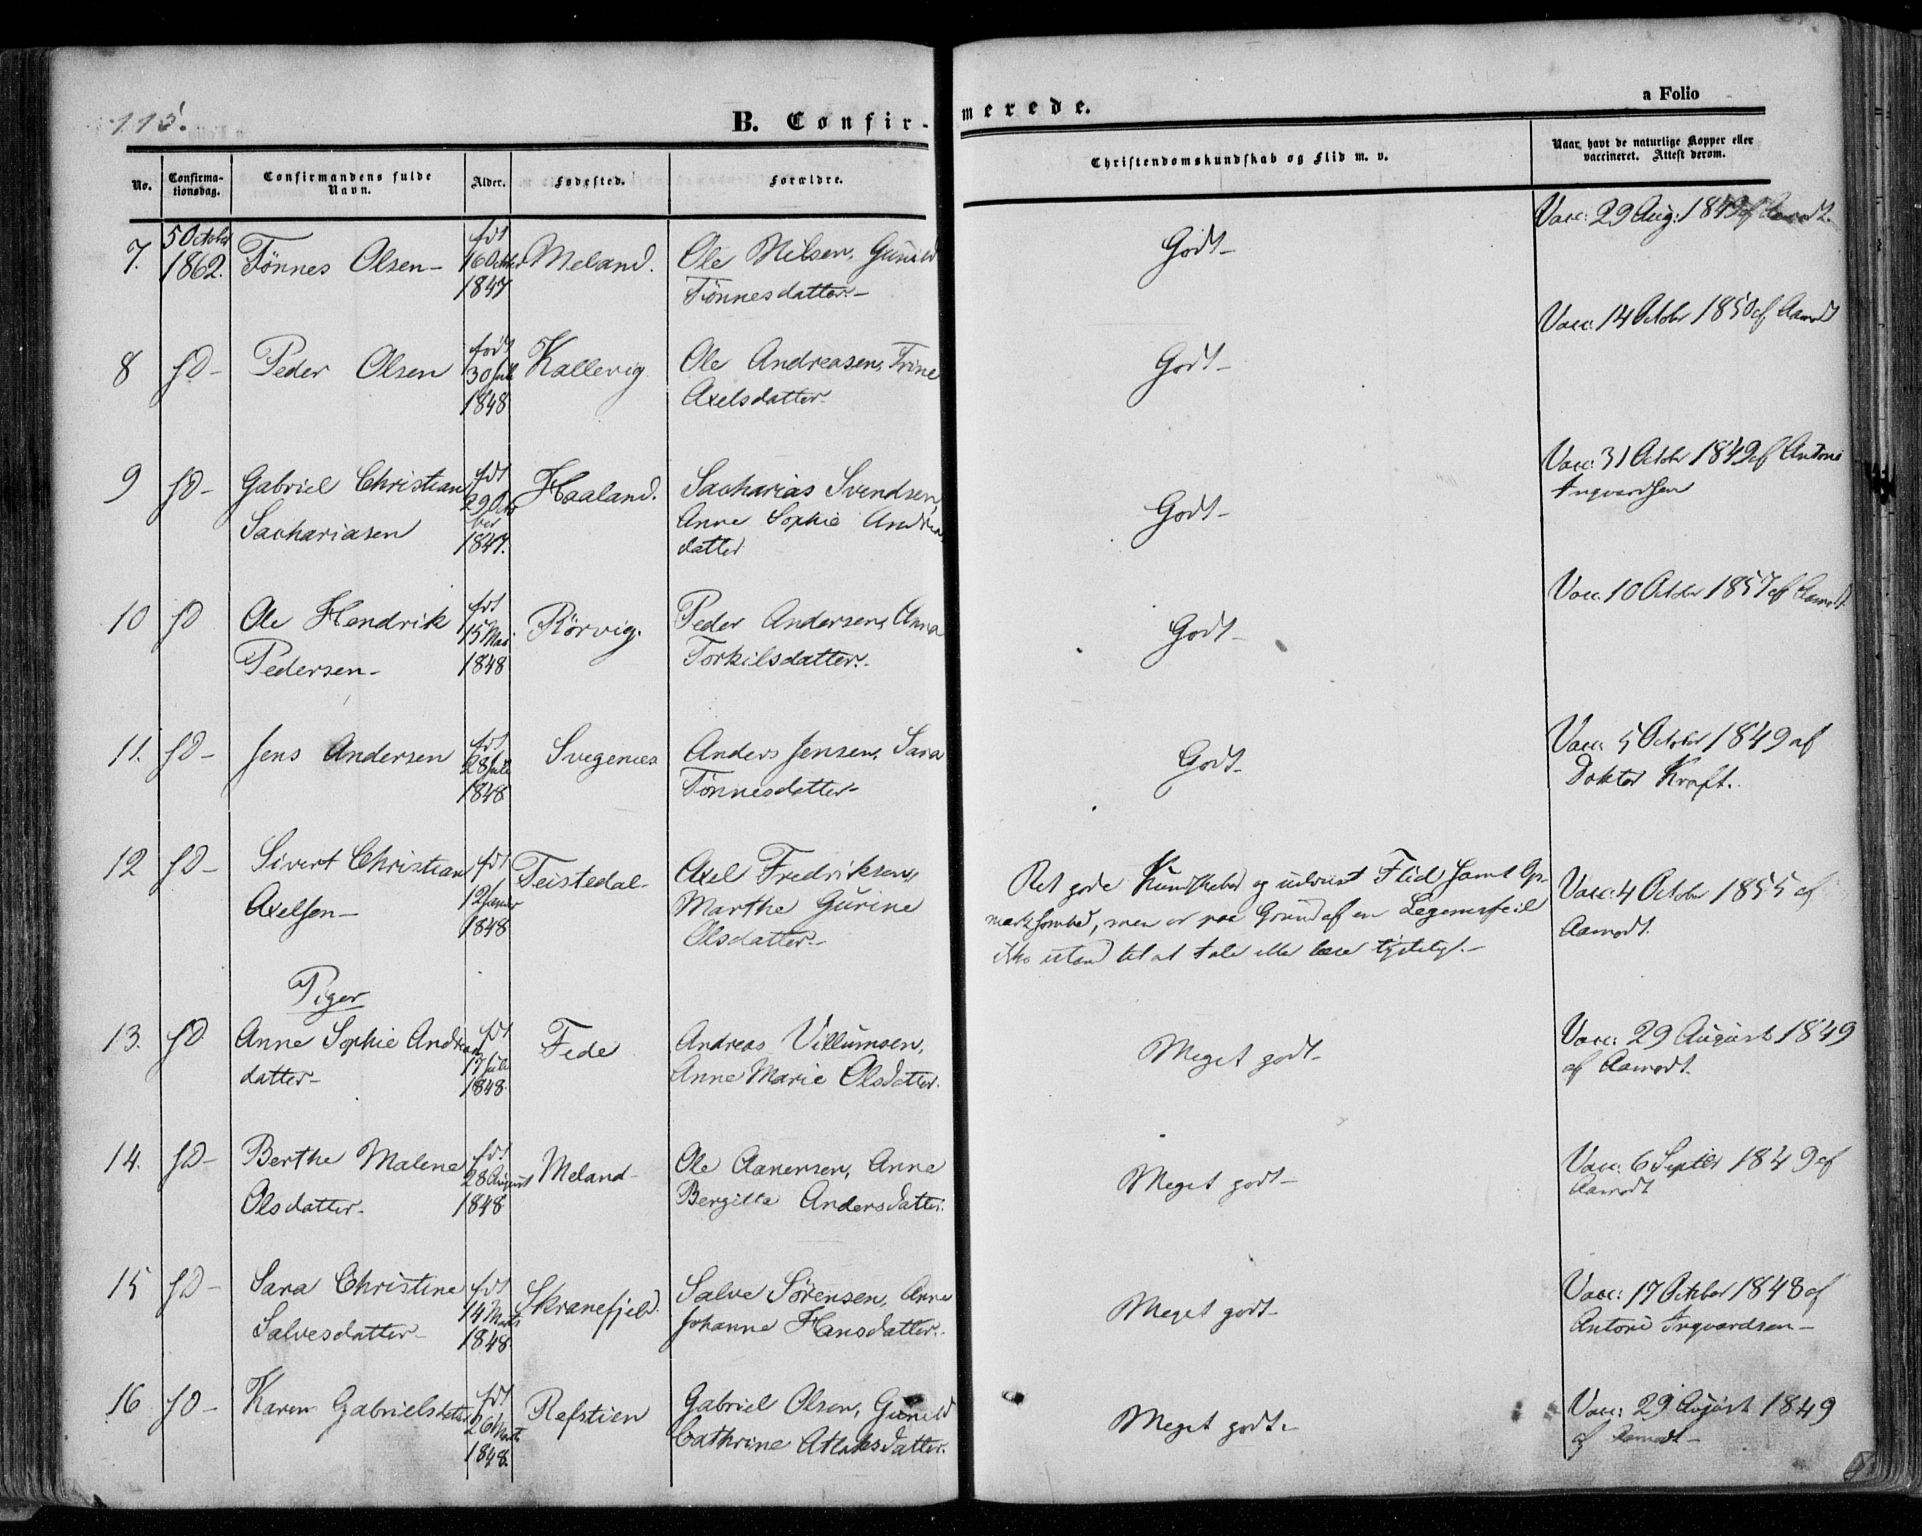 115.
B. Confir-
merede.
a Folio
No.
Confirma-
tionsdag.
Confirmandens fulde
Navn.
Alder.
Fødested.
Forældre.
Christendomskundskab og Flid m. v.
Naar havt de naturlige Kopper eller
vaccineret. Attest derom.
7. 5 October 1862. Tönnes Olsen- fdt 16 October 1847 Meland. Ole Nilsen, Gunild
Tönnesdatter.-
Godt-
Vacc: 29 Aug: 1849 af Aamodt.
8 fD- Peder Olsen født 30 Juli 1848 Kallevig Ole Andreasen, Trine
Axelsdatter-
Godt-
Vacc. 14 Octobr 1850 af Aamodt
9 fD- Gabriel Christian fdt 29 October 1847. Haaland. Sacharias Svendsen,
Sachariasen Anne Sophie Andreas
datter
Godt-
Vacc: 31 Octobr 1849 af Antoni
Ingvardsen
10 fD Ole Hendrik fdt 15 Mai 1848 Rörvig. Peder Andersen, Anna
Pedersen- Torkilsdatter.
Godt-
Vacc. 10 October 1857 af Aamodt
11. fD- Jens Andersen fdt 28 Juli 1848 Svegenes Anders Jensen, Sara
Tönnesdatter-
Godt-
Vacc. 5 October 1849 af
Doktor Kraft.
12 fD- Sivert Christian fdt 12 Januar 1848 Teistedal- Axel Fredriksen,
Axelsen- Marthe Gurine
Olsdatter-
Ret gode Kundskaber og udviist Flid samt Op-
mærksomhed, men er paa Grund af en Legemsfeil
ikke istand til at tale eller læse tydeligt.-
Vacc. 4 October 1855 af
Aamodt.
Piger
13. fD. Anne Sophie Andreas fdt 17 Juli 1848. Fede Andreas Villumsen,
datter- Anne Marie Olsdatter.
Meget godt-
Vacc: 29 August 1849
af Aamodt.
14. fD- Berthe Malene fdt 28 August 1848 Meland- Ole Aanensen, Anne
Olsdatter- Bergitta Andersdatter.
Meget godt-
Vacc. 6 Septbr 1849 af
Aamodt
15 fD- Sara Christine fdt 14 Marts 1848 Skranefjeld. Salve Sörensen, Anne
Salvesdatter- Johanne Hansdatter.
Meget godt-
Vacc: 17 October 1848 af
Antoni Ingvardsen-
16 fD- Karen Gabrielsdatter fdt 26 Marts 1848. Refstien Gabriel Olsen, Gunild
Cathrine Atlaksdatter.
Meget godt.-
Vacc: 29 August 1849
af Aamodt-